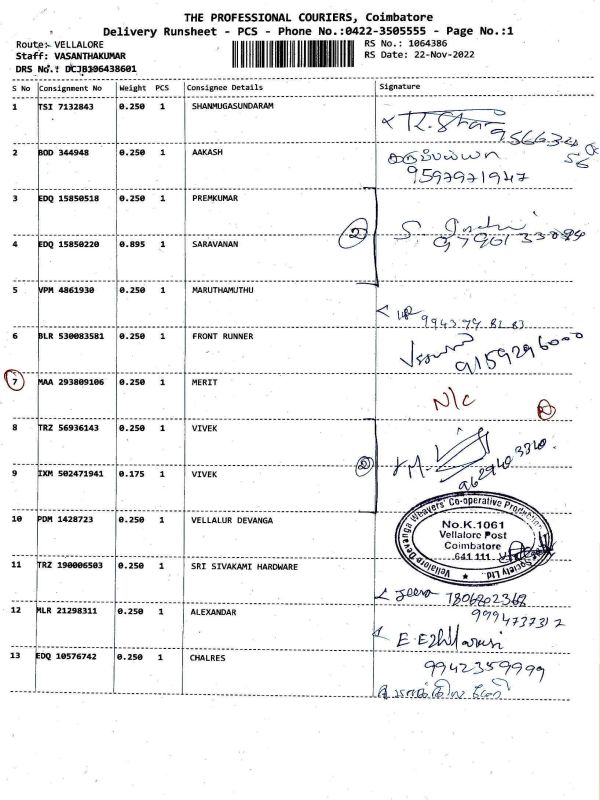 THE PROFESSIONAL COURIERS, Coimbatore
Delivery Runsheet - PCS - Phone No.:0422-3505555 - Page No.:1
Route:- VELLALORE
RS No.: 1064386
Staff: VASANTHAKUMAR
RS Date: 22-Nov-2022
DRS No.: DCJB106438601
S No Consignment No Weight PCS Consignee Details Signature
1 TSI 7132843 0.250 1 SHANMUGASUNDARAM
2 BOD 344948 0.250 1 AAKASH
9597971947
3 EDQ 15850518 0.250 1 PREMKUMAR
2
4 EDQ 15850220 0.895 1 SARAVANAN
5 VPM 4861930 0.250 1 MARUTHAMUTHU
9943 79 81 83
6 BLR 530083581 0.250 1 FRONT RUNNER
9159296000
7 MAA 293809106 0.250 1 MERIT
N/C
8 TRZ 56936143 0.250 1 VIVEK
2
9 IXM 502471941 0.175 1 VIVEK
9629403340
10 PDM 1428723 0.250 1 VELLALUR DEVANGA
Vellalore Devanga Weavers' Co-operative Production Society Ltd
No.K.1061
Vellalore Post
Coimbatore
641 111
11 TRZ 190006503 0.250 1 SRI SIVAKAMI HARDWARE
12 MLR 21298311 0.250 1 ALEXANDAR
9994737312
E. Ezhilarasi
13 EDQ 10576742 0.250 1 CHALRES
9942359999